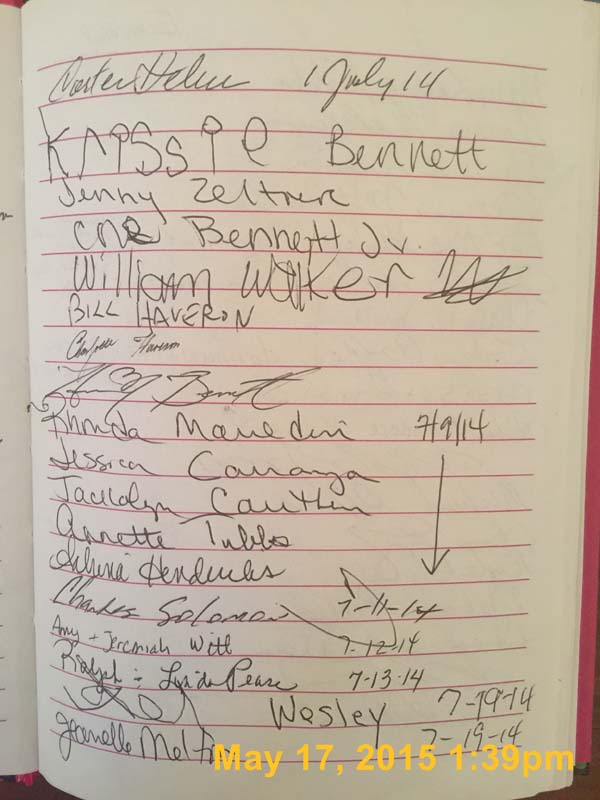 Carter 1 July 14
KAISSIE Bennett
Jenny Zeltner
Bennett Jr.
William Walker
BILL HAVERON
Charlotte Haveron
Bennett
Rhonda 7/9/14
Jessica
Jacklyn
Annette Tubbs
Charles Solomon 7-11-14
Amy + Jeremiah Witt 7-12-14
Ralph : Linda Pease 7-13-14
Wesley 7-19-14
Jeanelle 7-19-14
May 17, 2015 1:39pm